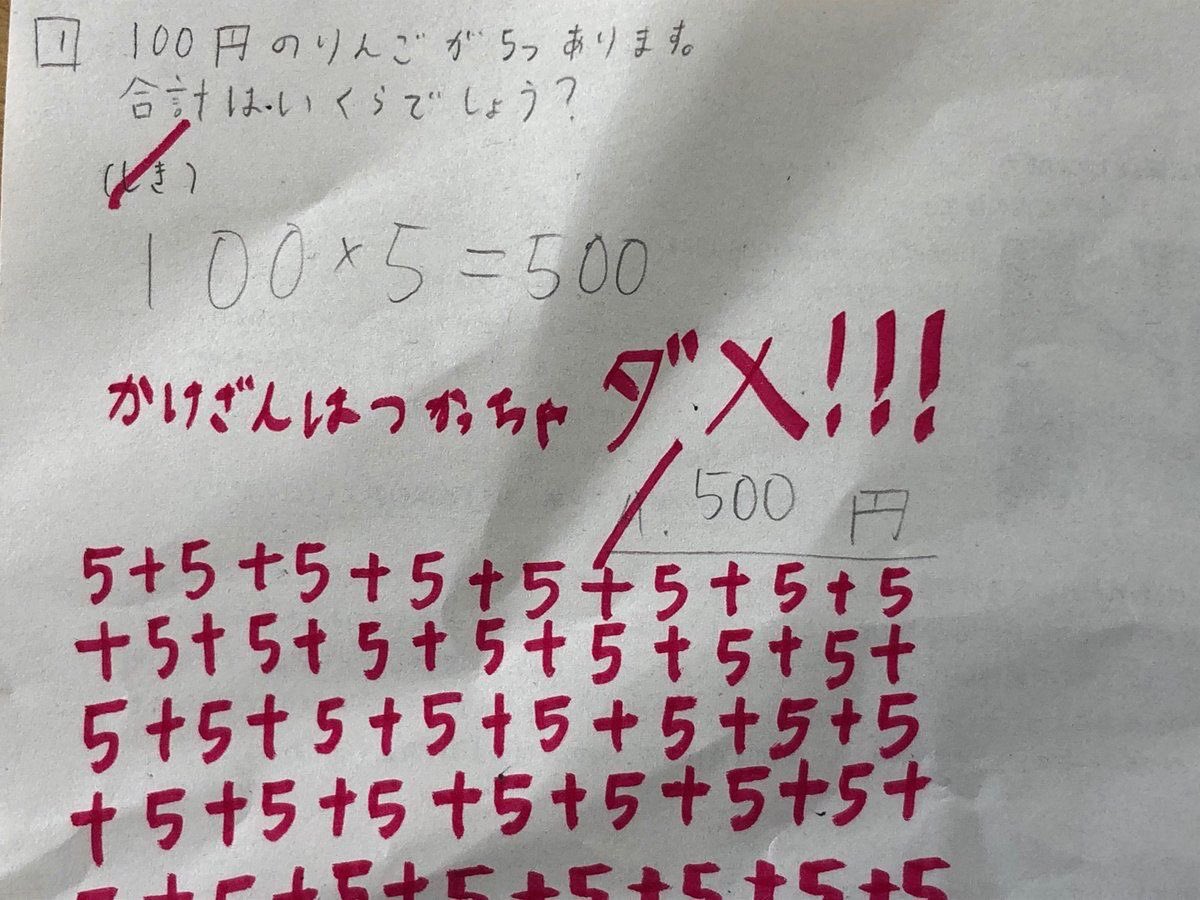 1 100円のりんごが5つあります。
合計はいくらでしょう?
(しき)
100×5=500
かけざんはつかっちゃダメ!!!
A. 500円
5+5+5+5+5+5+5+5
+5+5+5+5+5+5+5+
5+5+5+5+5+5+5+5
+5+5+5+5+5+5+5+
5+5+5+5+5+5+5+5